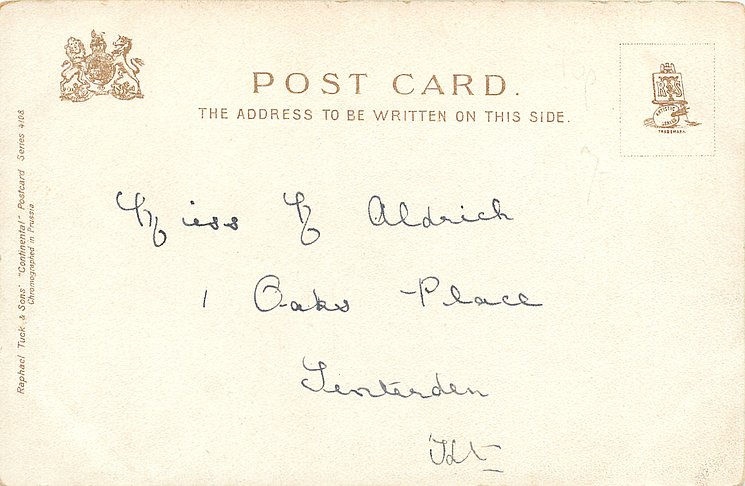 POST CARD.
THE ADDRESS TO BE WRITTEN ON THIS SIDE.
ARTISTIC SERIES
TRADEMARK
Miess Aldrich
1 Oaks Place
Tenterden
Kt
Raphael Tuck & Sons' "Continental" Postcard Series 4108
Chromographed in Prussia